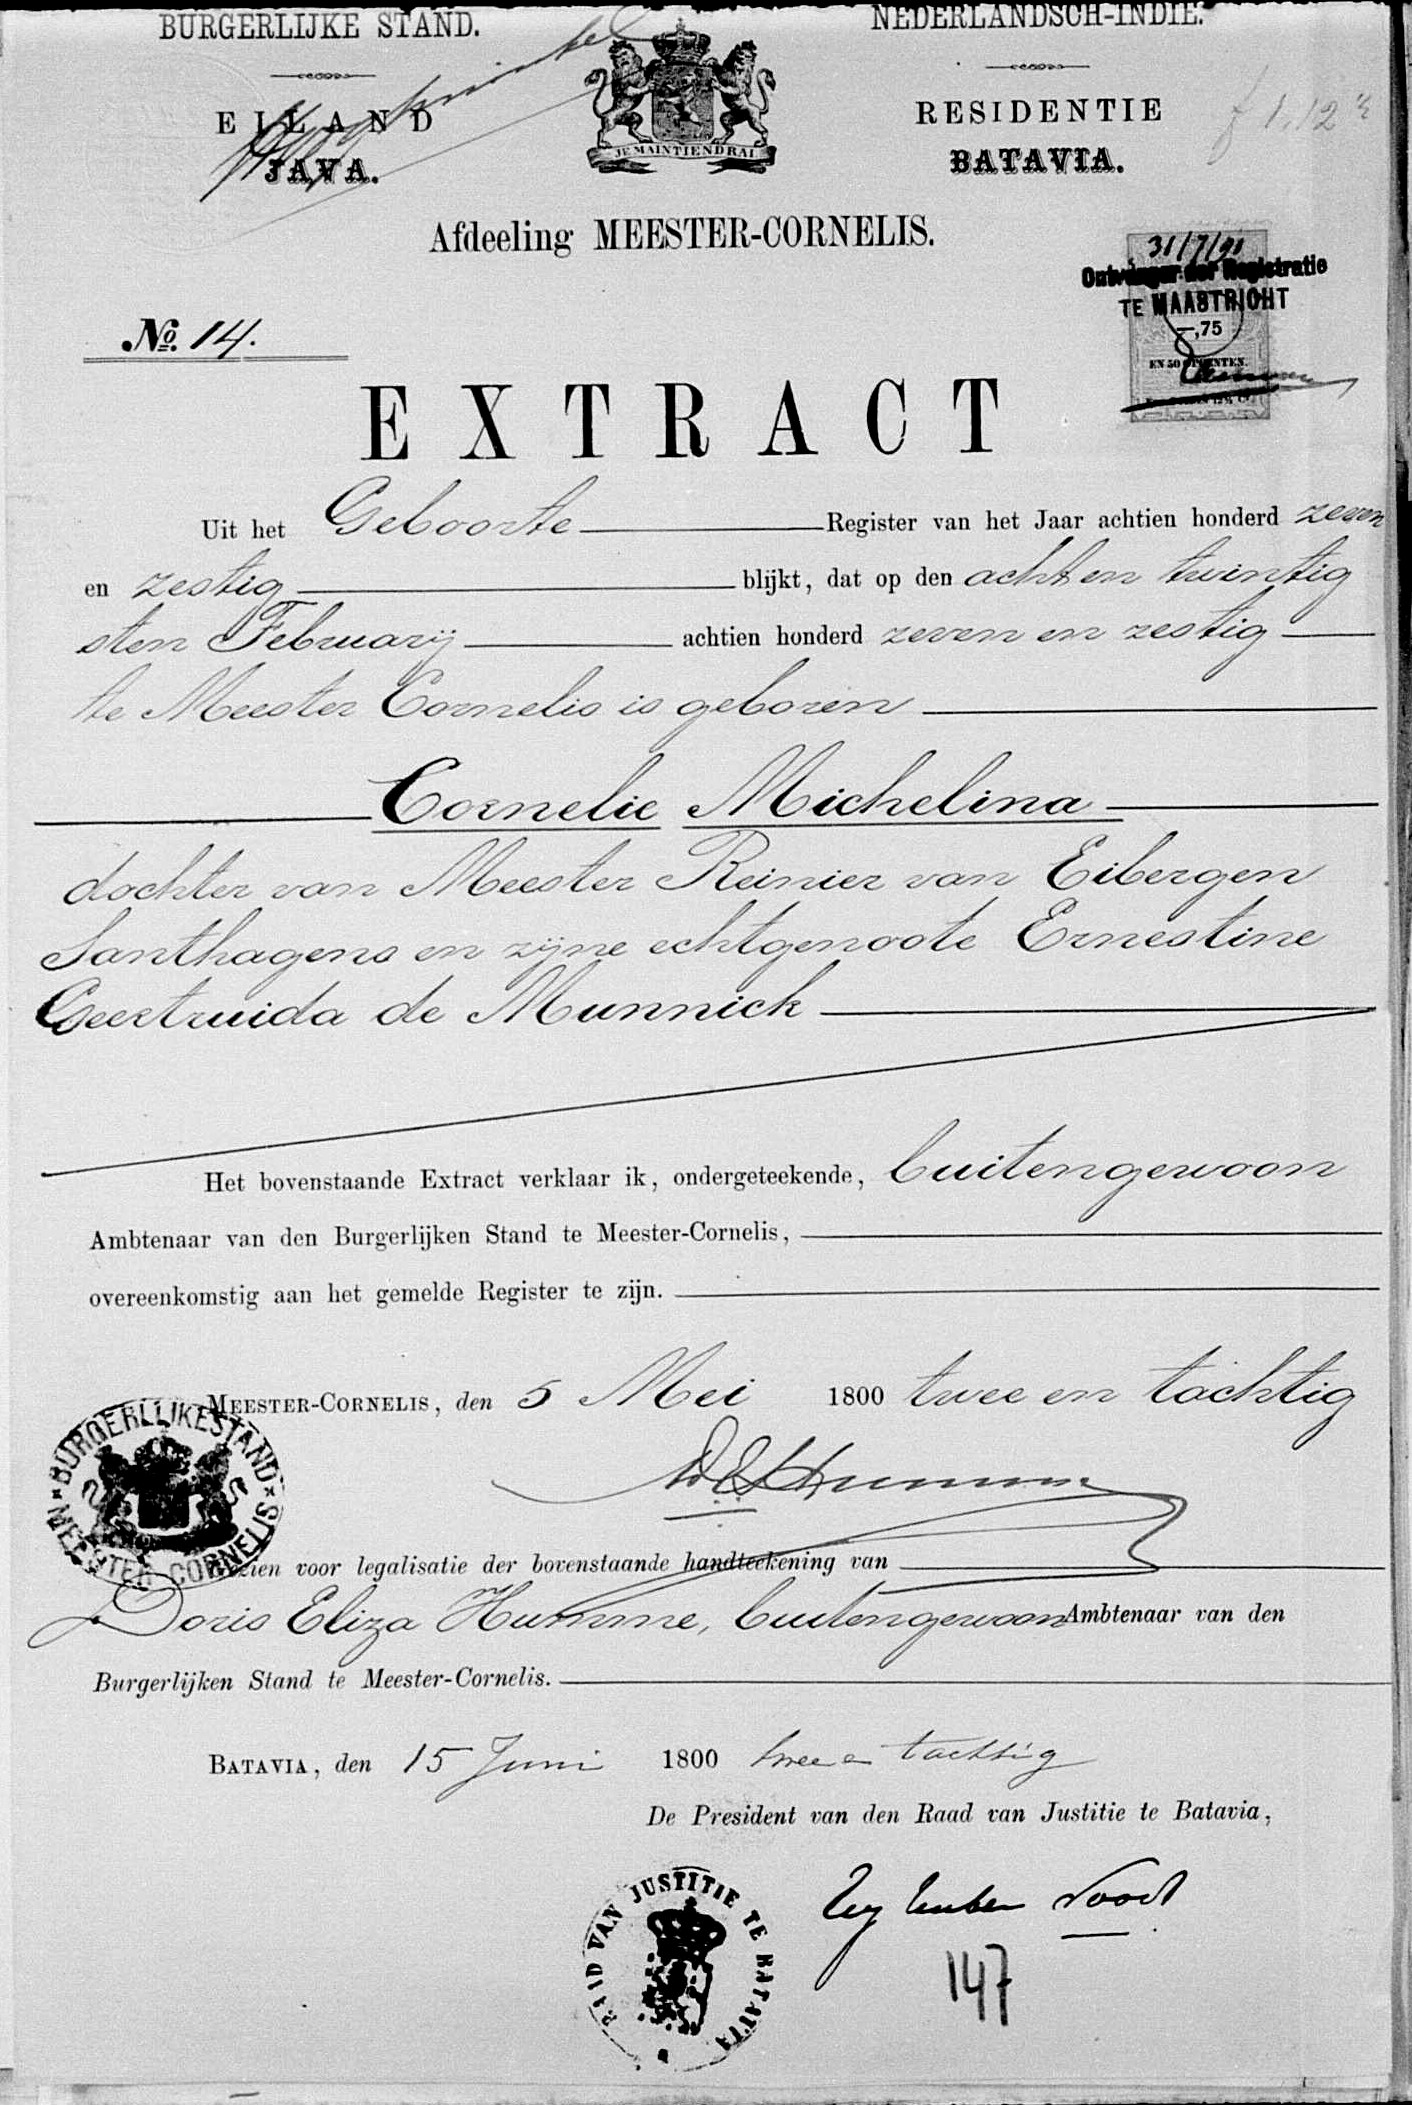 BURGERLIJKE STAND.
NEDERLANDSCH-INDIE.
EILAND
JAVA.
JE MAINTIENDRAI
RESIDENTIE
BATAVIA.
f 1.12½
Afdeeling MEESTER-CORNELIS.
31/7/91
Ontvanger der Registratie
TE MAASTRICHT
-,75
EN 50 OPCENTEN.
No. 14.
EXTRACT
Uit het Geboorte Register van het Jaar achtien honderd zeven
en zestig blijkt, dat op den acht en twintig
sten Februarij achtien honderd zeven en zestig
te Meester Cornelis is geboren
Cornelie Michelina
dochter van Meester Reinier van Eibergen
Santhagens en zijne echtgenoote Ernestine
Geertruida de Munnick
Het bovenstaande Extract verklaar ik, ondergeteekende, buitengewoon
Ambtenaar van den Burgerlijken Stand te Meester-Cornelis,
overeenkomstig aan het gemelde Register te zijn.
MEESTER-CORNELIS, den 5 Mei 1800 twee en tachtig
BURGERLIJKE STAND
MEESTER CORNELIS
DEHumme
Gezien voor legalisatie der bovenstaande handteekening van
Doris Eliza Humme, buitengewoon Ambtenaar van den
Burgerlijken Stand te Meester-Cornelis.
BATAVIA, den 15 Juni 1800 twee en tachtig
De President van den Raad van Justitie te Batavia,
RAAD VAN JUSTITIE TE BATAVIA
147